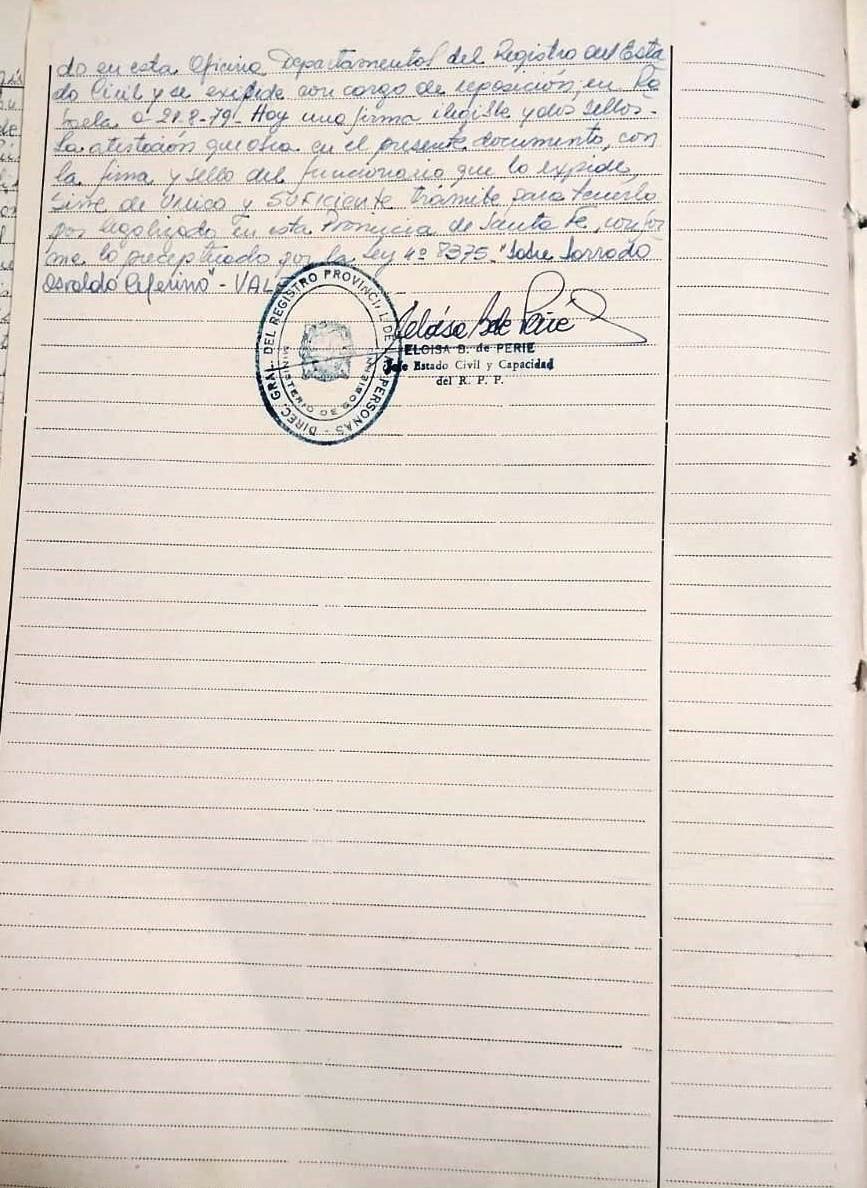 do en esta Oficina Departamental del Registro del Esta
do Civil y se expide con cargo de reposición, en Ra
faela a 21-8-79. Hay una firma ilegible y dos sellos.-
La atestación que obra en el presente documento, con
la firma y sello del funcionario que lo expide,
sirve de único y suficiente trámite para tenerlo
por legalizado en esta Provincia de Santa Fe, confor
me lo preceptuado por la Ley nº 8375. "Sobre borrado
Osvaldo Ceferino" - VALE
DIREC. GRAL. DEL REGISTRO PROVINCIAL DE LAS PERSONAS -
MINISTERIO DE GOBIERNO
Eloisa B de Perié
ELOISA B. de PERIE
Jefe Estado Civil y Capacidad
del R. P. P.